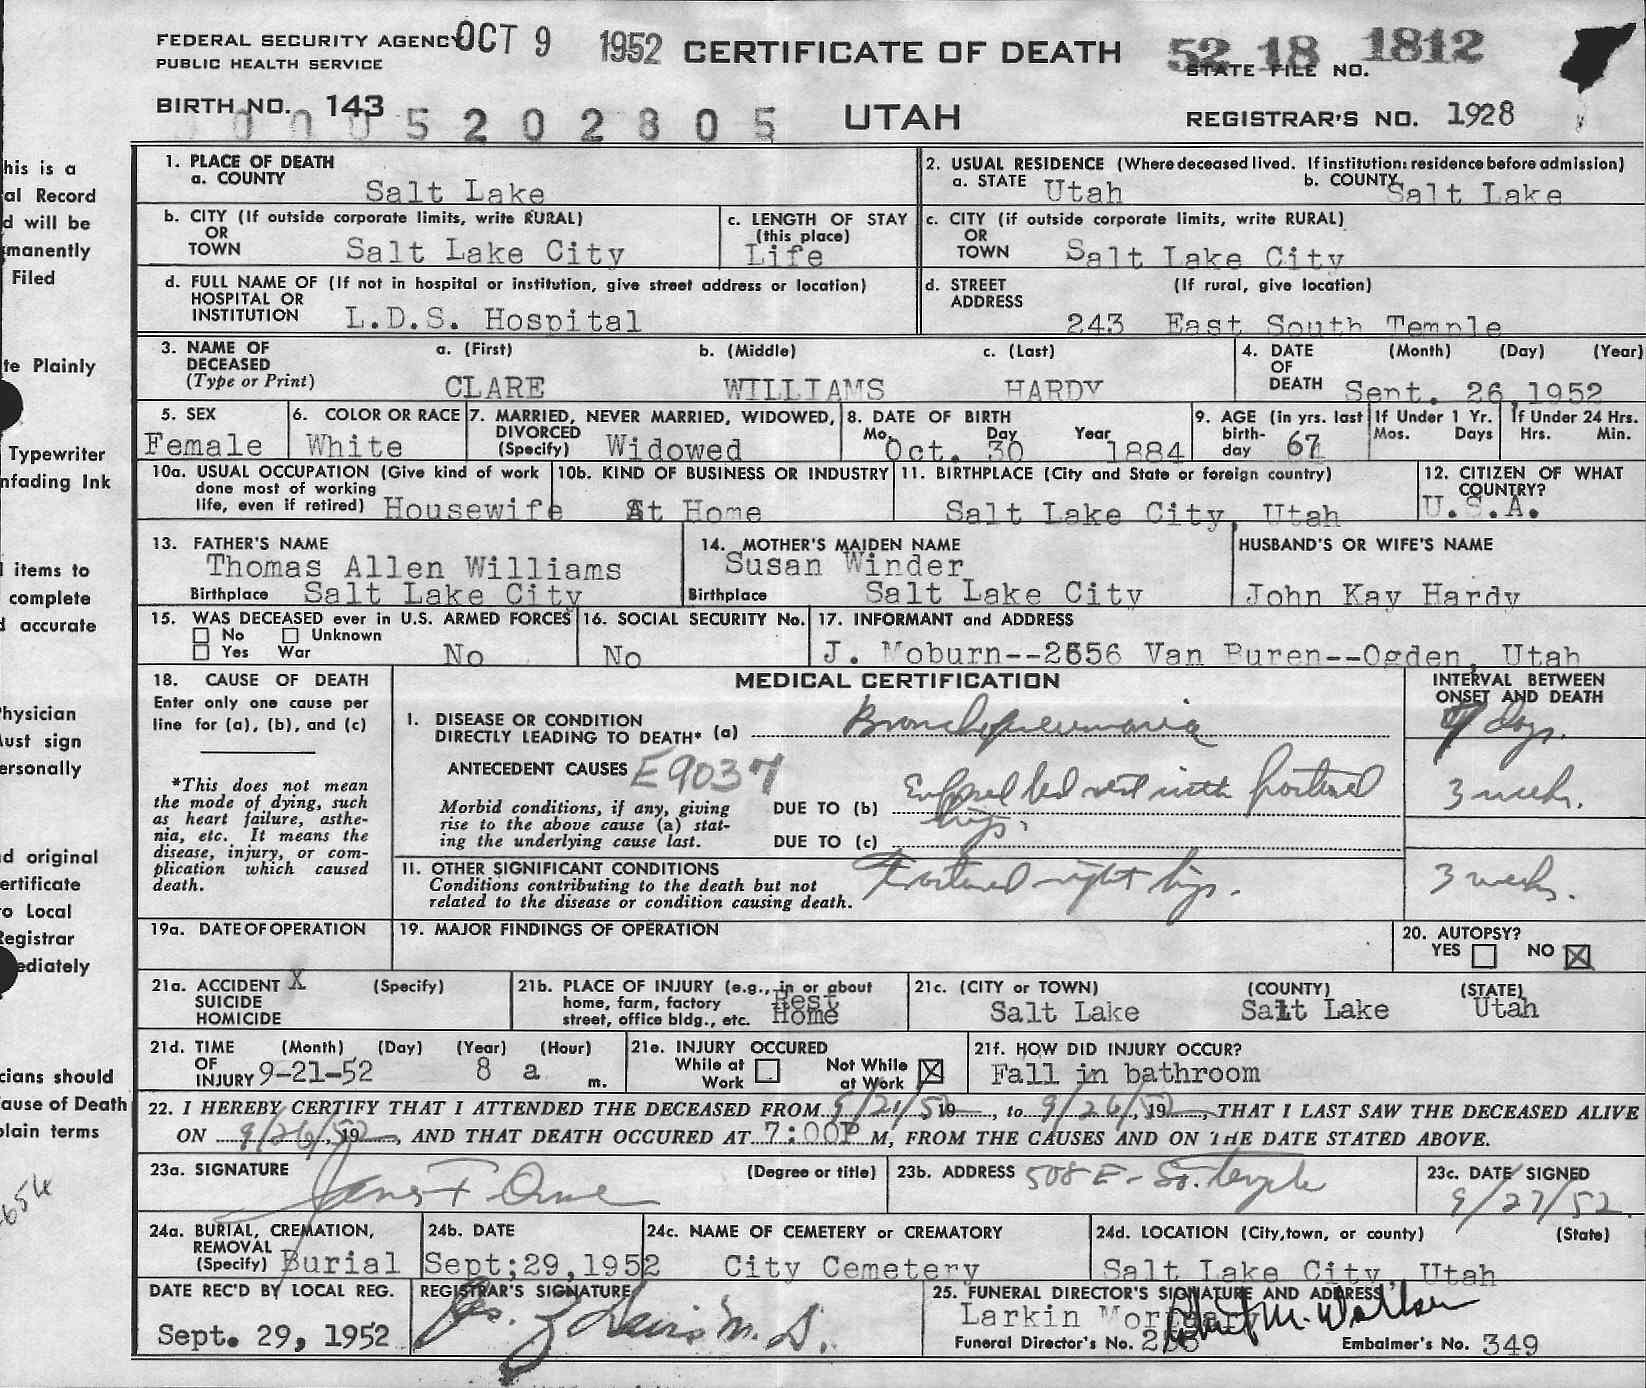 FEDERAL SECURITY AGENCY OCT 9 1952 CERTIFICATE OF DEATH 52 18 1812
PUBLIC HEALTH SERVICE STATE FILE NO.
BIRTH NO. 143 UTAH REGISTRAR'S NO. 1928
5 2 0 2 8 0 5
his is a
al Record
d will be
manently
Filed
te Plainly
Typewriter
nfading Ink
items to
complete
d accurate
Physician
Must sign
ersonally
d original
ertificate
o Local
Registrar
ediately
cians should
ause of Death
plain terms
1. PLACE OF DEATH
a. COUNTY Salt Lake
2. USUAL RESIDENCE (Where deceased lived. If institution: residence before admission)
a. STATE Utah b. COUNTY Salt Lake
b. CITY (If outside corporate limits, write RURAL)
OR
TOWN Salt Lake City
c. LENGTH OF STAY
(this place)
Life
c. CITY (if outside corporate limits, write RURAL)
OR
TOWN Salt Lake City
d. FULL NAME OF (If not in hospital or institution, give street address or location)
HOSPITAL OR
INSTITUTION L.D.S. Hospital
d. STREET (If rural, give location)
ADDRESS
243 East South Temple
3. NAME OF a. (First) b. (Middle) c. (Last)
DECEASED
(Type or Print) CLARE WILLIAMS HARDY
4. DATE (Month) (Day) (Year)
OF
DEATH Sept. 26,1952
5. SEX
Female
6. COLOR OR RACE
White
7. MARRIED, NEVER MARRIED, WIDOWED,
DIVORCED
(Specify) Widowed
8. DATE OF BIRTH
Mo. Day Year
Oct. 30 1884
9. AGE (in yrs. last
birth-
day 67
If Under 1 Yr.
Mos. Days
If Under 24 Hrs.
Hrs. Min.
10a. USUAL OCCUPATION (Give kind of work
done most of working
life, even if retired) Housewife
10b. KIND OF BUSINESS OR INDUSTRY
At Home
11. BIRTHPLACE (City and State or foreign country)
Salt Lake City, Utah
12. CITIZEN OF WHAT
COUNTRY?
U.S.A.
13. FATHER'S NAME
Thomas Allen Williams
Birthplace Salt Lake City
14. MOTHER'S MAIDEN NAME
Susan Winder
Birthplace Salt Lake City
HUSBAND'S OR WIFE'S NAME
John Kay Hardy
15. WAS DECEASED ever in U.S. ARMED FORCES
No Unknown
Yes War No
16. SOCIAL SECURITY No.
No
17. INFORMANT and ADDRESS
J. Moburn--2656 Van Buren--Ogden, Utah
18. CAUSE OF DEATH
Enter only one cause per
line for (a), (b), and (c)
*This does not mean
the mode of dying, such
as heart failure, asthe-
nia, etc. It means the
disease, injury, or com-
plication which caused
death.
MEDICAL CERTIFICATION
INTERVAL BETWEEN
ONSET AND DEATH
I. DISEASE OR CONDITION
DIRECTLY LEADING TO DEATH* (a) Bronchopneumonia days.
ANTECEDENT CAUSES E9037
Morbid conditions, if any, giving
rise to the above cause (a) stat-
ing the underlying cause last.
DUE TO (b) Enforced bed rest with fractured 3 weeks.
hip.
DUE TO (c)
II. OTHER SIGNIFICANT CONDITIONS
Conditions contributing to the death but not
related to the disease or condition causing death.
Fractured right hip. 3 weeks.
19a. DATE OF OPERATION
19. MAJOR FINDINGS OF OPERATION
20. AUTOPSY?
YES NO X
21a. ACCIDENT X (Specify)
SUICIDE
HOMICIDE
21b. PLACE OF INJURY (e.g., in or about
home, farm, factory
street, office bldg., etc. Rest
Home
21c. (CITY or TOWN) (COUNTY) (STATE)
Salt Lake Salt Lake Utah
21d. TIME (Month) (Day) (Year) (Hour)
OF
INJURY 9-21-52 8 a m.
21e. INJURY OCCURED
While at Not While
Work at Work X
21f. HOW DID INJURY OCCUR?
Fall in bathroom
22. I HEREBY CERTIFY THAT I ATTENDED THE DECEASED FROM 9/21/52 19, to 9/26, 1952, THAT I LAST SAW THE DECEASED ALIVE
ON 9/26/52, 19, AND THAT DEATH OCCURED AT 7:00P M, FROM THE CAUSES AND ON THE DATE STATED ABOVE.
23a. SIGNATURE (Degree or title)
23b. ADDRESS 508 E - So. Temple
23c. DATE SIGNED
9/27/52.
24a. BURIAL, CREMATION,
REMOVAL
(Specify) Burial
24b. DATE
Sept;29,1952
24c. NAME OF CEMETERY OR CREMATORY
City Cemetery
24d. LOCATION (City,town, or county) (State)
Salt Lake City, Utah
DATE REC'D BY LOCAL REG.
Sept. 29, 1952
REGISTRAR'S SIGNATURE
25. FUNERAL DIRECTOR'S SIGNATURE AND ADDRESS
Larkin Mortuary
Funeral Director's No. Embalmer's No. 349